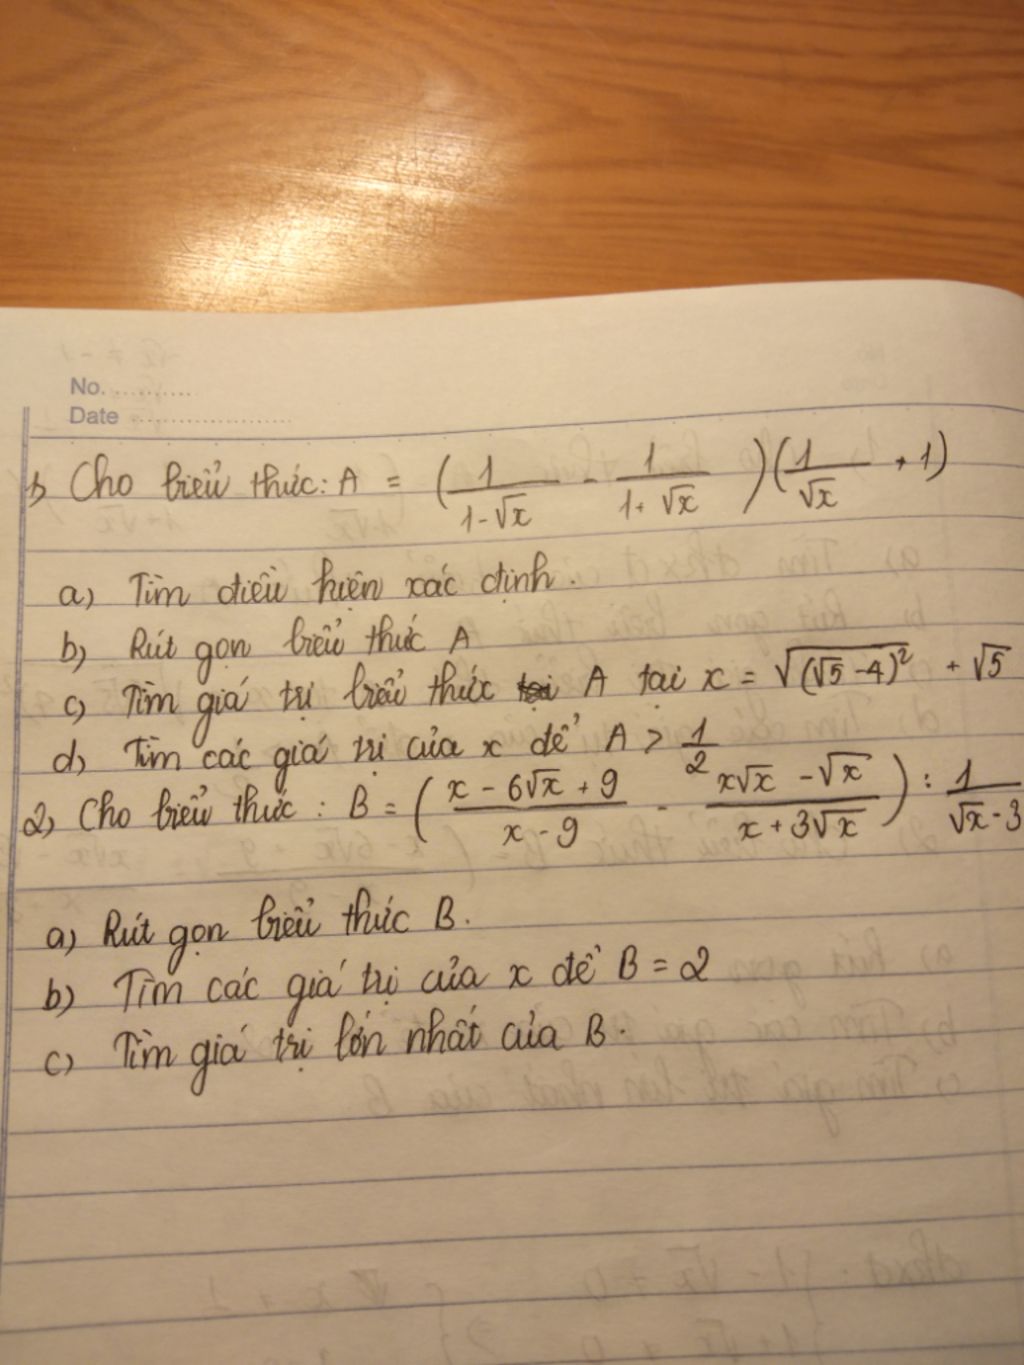 No. ............
Date ......................
1) Cho biểu thức: A = (1/(1-√x) - 1/(1+√x))(1/√x + 1)
a) Tìm điều kiện xác định.
b) Rút gọn biểu thức A
c) Tìm giá trị biểu thức A tại x = √((√5-4)²) + √5
d) Tìm các giá trị của x để A > 1/2
2) Cho biểu thức : B = ((x - 6√x + 9)/(x - 9) - (x√x - √x)/(x + 3√x)) : 1/(√x - 3)
a) Rút gọn biểu thức B.
b) Tìm các giá trị của x để B = 2
c) Tìm giá trị lớn nhất của B.